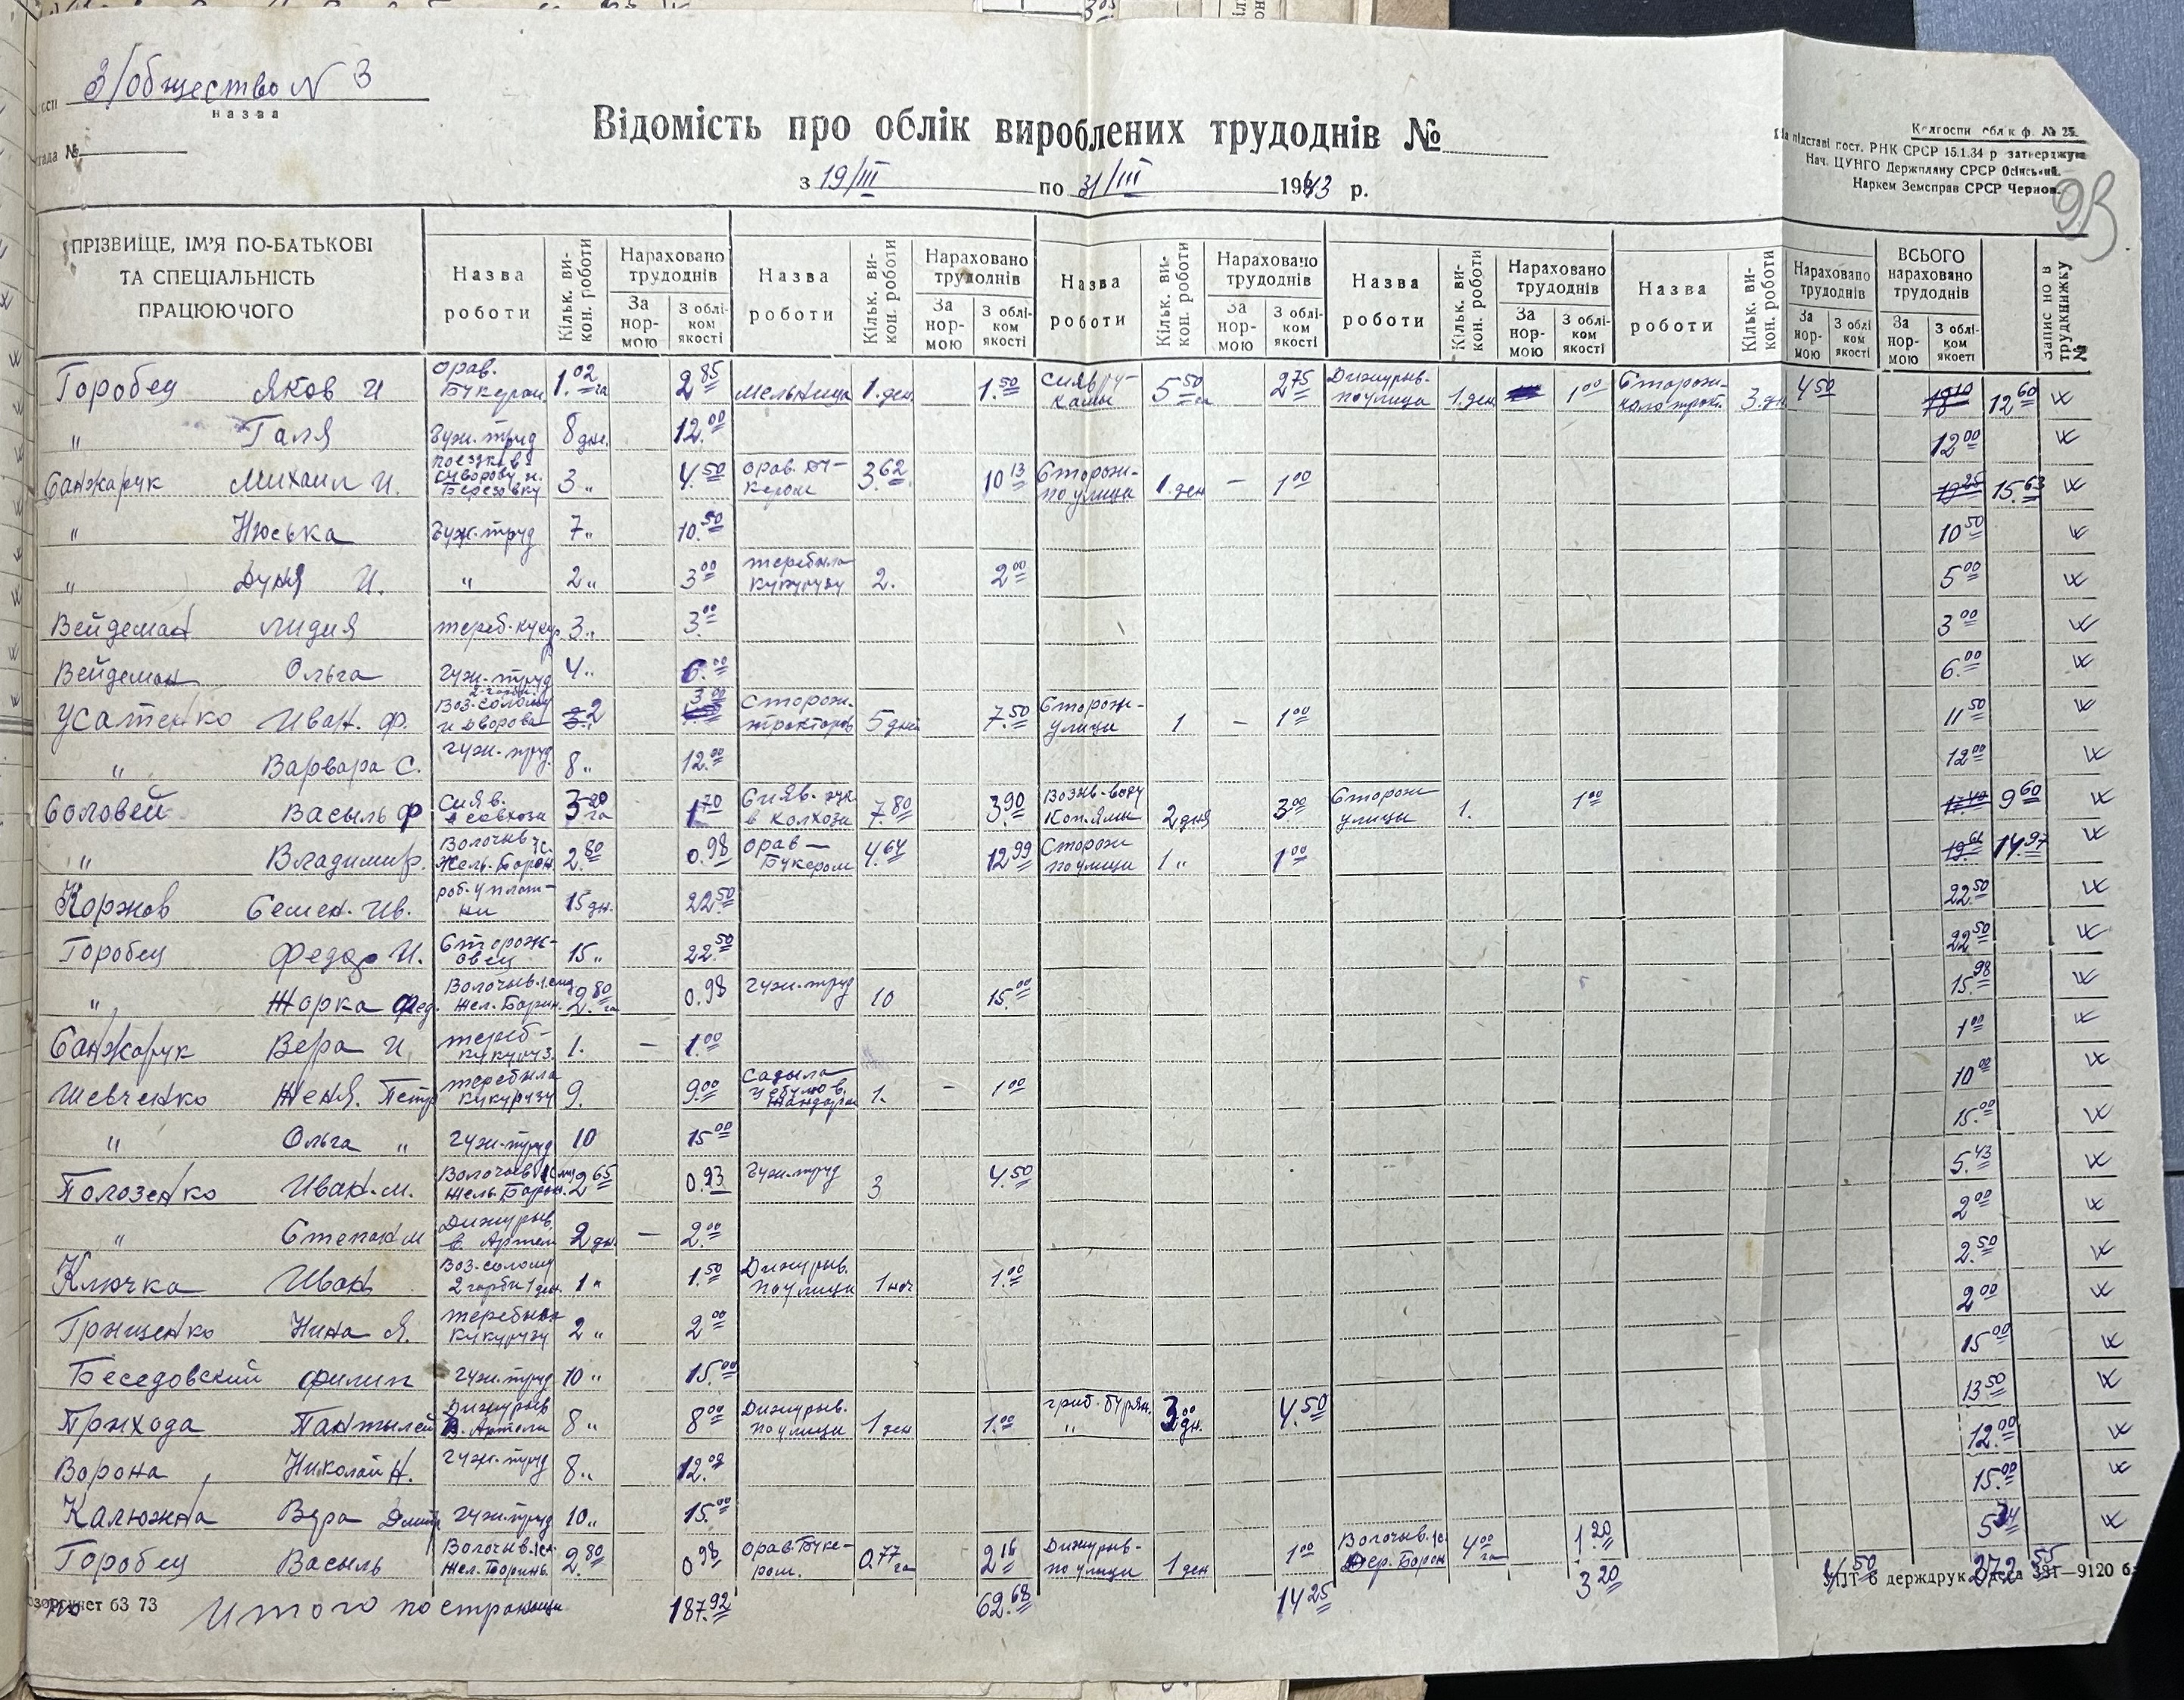 З/общество N 3
назва
Відомість про облік вироблених трудоднів №
з 19/III по 31/III 1943 р.
Колгоспи обл к ф. № 25.
На підставі пост. РНК СРСР 15.1.34 р затверджую
Нач. ЦУНГО Держплану СРСР Осінський.
Наркем Земсправ СРСР Чернов.
93
ПРІЗВИЩЕ, ІМ'Я ПО-БАТЬКОВІ ТА СПЕЦІАЛЬНІСТЬ ПРАЦЮЮЧОГО
Назва роботи Кільк. ви-кон. роботи Нараховано трудоднів За нор-мою З облі-ком якості
Назва роботи Кільк. ви-кон. роботи Нараховано трудоднів За нор-мою З облі-ком якості
Назва роботи Кільк. ви-кон. роботи Нараховано трудоднів За нор-мою З облі-ком якості
Назва роботи Кільк. ви-кон. роботи Нараховано трудоднів За нор-мою З облі-ком якості
Назва роботи Кільк. ви-кон. роботи Нараховано трудоднів За нор-мою З облі ком якості
ВСЬОГО нараховано трудоднів За нор-мою З облі-ком якості
Запис но в трудкнижку №
Горобец Яков И Орав. Букером 1.02 га 2 85 мельница 1.ден 1.50 сияв ру-ками 5 50 га 2 75 Дижурыв. по улица 1.ден 1 00 Сторож. коло тракт. 3.дн 4 50 12 60
" Галя Гуж. труд 8 дн. 12.00 12 00
Санжарук Михаил И. поездка в Суворову и Березовку 3 " 4.50 орав. бу-кером 3.62 10 13 Сторож. по улица 1.ден – 1 00 15.63
" Нюська Гуж. труд 7 " 10.50 10 50
" Дуня И. " 2 " 3 00 теребила кукурузу 2. 2 00 5 00
Вейдеман Лидия тереб. кукур 3 " 3.00 3 00
Вейдеман Ольга гуж. труд 4 " 6.00 6.00
Усатенко Иван. Ф. Воз. солому 2 гарби и дворова 2 3.00 Сторож. тракторов 5 дней 7.50 Сторож. улицы 1 – 1 00 11 50
" Варвара С. гуж. труд. 8 " 12.00 12 00
Соловей Васыль Ф Сияв. в совхози 3 20 га 1 70 Сияв. рук в колхози 7.80 3.90 Возив. воду Коп. Ямы 2 дня 3 00 Сторож улицы 1. 1 00 9 60
" Владимир. Волочыв 1с. Жель. Борон 2.80 0.98 орав – Букером 4.64 12 99 Сторож по улица 1 " 1 00 14.97
Коржов Семен. Ив. роб. у плот-ни 15 дн. 22 50 22 50
Горобец Федор И. Сторож- овец 15 " 22 50 22 50
" Жорка Фед. Волочыв. 1 след Жел. Борин. 2.80 га 0.98 гуж. труд 10 15 00 15.98
Санжарук Вера И тереб- кукуруз. 1. – 1 00 1 00
Шевченко Женя. Петр теребила кукурузу 9. 9 00 Садыла цебулю в. Жандарм 1. – 1 00 10 00
" Ольга " гуж. труд 10 15 00 15 00
Полозенко Иван. М. Волочыв. 1 след Жель. Борон. 2 65 0.93 гуж. труд 3 4.50 5.43
" Степан М Дижурыв. в. Артели 2 дн. – 2 00 2 00
Ключка Иван Воз. солому 2 гарби 1 ден. 1 " 1.50 Дижурыв. по улицы 1 ноч 1.00 2.50
Грищенко Нина Я. теребила кукурузу 2 " 2 00 2 00
Беседовский Филип гуж. труд 10 " 15.00 15 00
Прихода Пантылей Дижурыв В. Артели 8 " 8 00 Дижурыв. по улицы 1 ден 1.00 гриб. бурян. " 3 00 дн. 4.50 13 50
Ворона Николай Н. гуж. труд 8 " 12.00 12.00
Калюжна Вера Дмитр гуж. труд 10 " 15.00 15.00
Горобец Васыль Волочыв. 1сл Жел. Борин. 2.80 0 98 орав Буке-ром. 0,77 га 2 16 Дижурыв- по улицы 1 ден 1 00 Волочыв. 1с. Дер. Борон 4 00 га 1.20 5 34
Итого по странице 187.92 62.68 14 25 3 20 4 50 272 55
бЗ 73
держдрук Одеса —9120